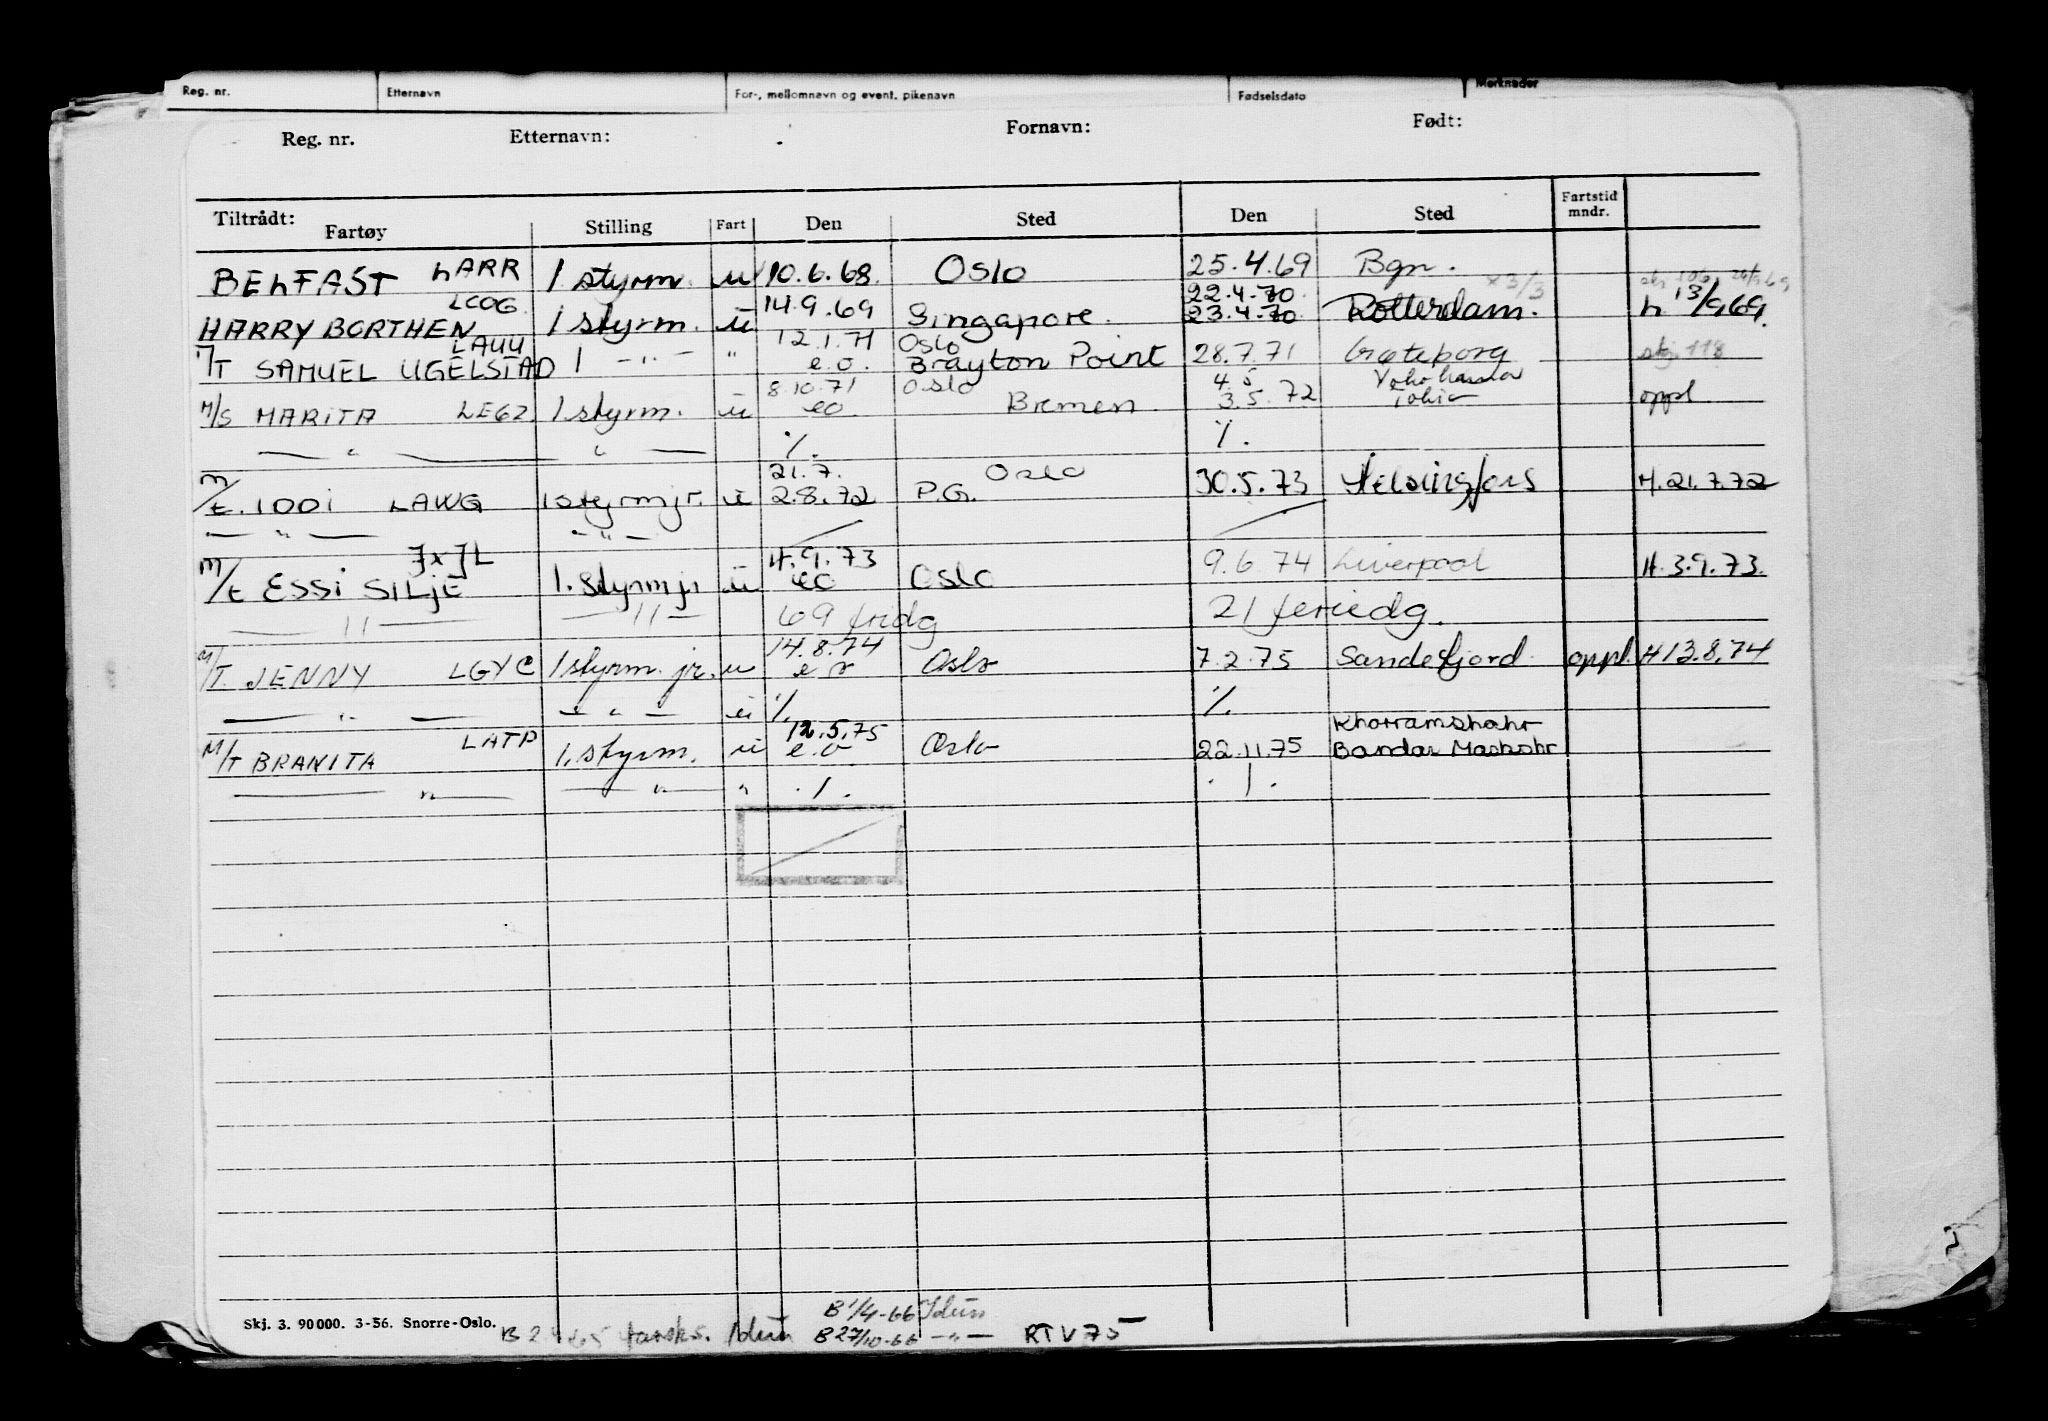 Reg. nr. Etternavn For-, mellomnavn og event. pikenavn Fødselsdato Merknader
Reg. nr. Etternavn: Fornavn: Født:
Tiltrådt: Fartøy Stilling Fart Den Sted Den Sted Fartstid mndr.
BELFAST LARR 1 styrm. u 10.6.68. Oslo 25.4.69 Bgn.
x 3/3
LCOG 14.9.69 22.4.70.
HARRY BORTHEN 1 styrm. u Singapore. 23.4.70 Rotterdam. h 13/9 69.
LAUU 12.1.71 Oslo
T/T SAMUEL UGELSTAD 1 — " — " e.o. Brayton Point 28.7.71 Gøteborg skj 118
8.10.71 Oslo 4.5 Yokohama
M/S MARITA LEGZ. 1 styrm. u eo Bremen. 3.5.72 oppl.
— " — " — ./. ./.
21.7. Oslo
M/T. IDDI LAWG 1 styrm jr. u 2.8.72 P.G. 30.5.73 Helsingfors H. 21.7.72
— " — — " —
JXJL 4.9.73
M/T ESSI SILJE 1. styrm jr u eo Oslo 9.6.74 Liverpool H. 3.9.73.
— " — — " — 69 fridg 21 feriedg.
14.8.74
M/T. JENNY LGYC 1 styrm. jr. u e o Oslo 7.2.75 Sandefjord oppl. H 13.8.74
— " — — " — u ./. ./.
LATP 12.5.75 Khorramshahr
M/T BRANITA 1. styrm. u e.o. Oslo 22.11.75 Bandar Mashahr
— " — — " — " ./. ./.
B 1/4-66 Idun
Skj. 3. 90 000. 3-56. Snorre-Oslo. Idun B 27/10-66 — " — RTV 75